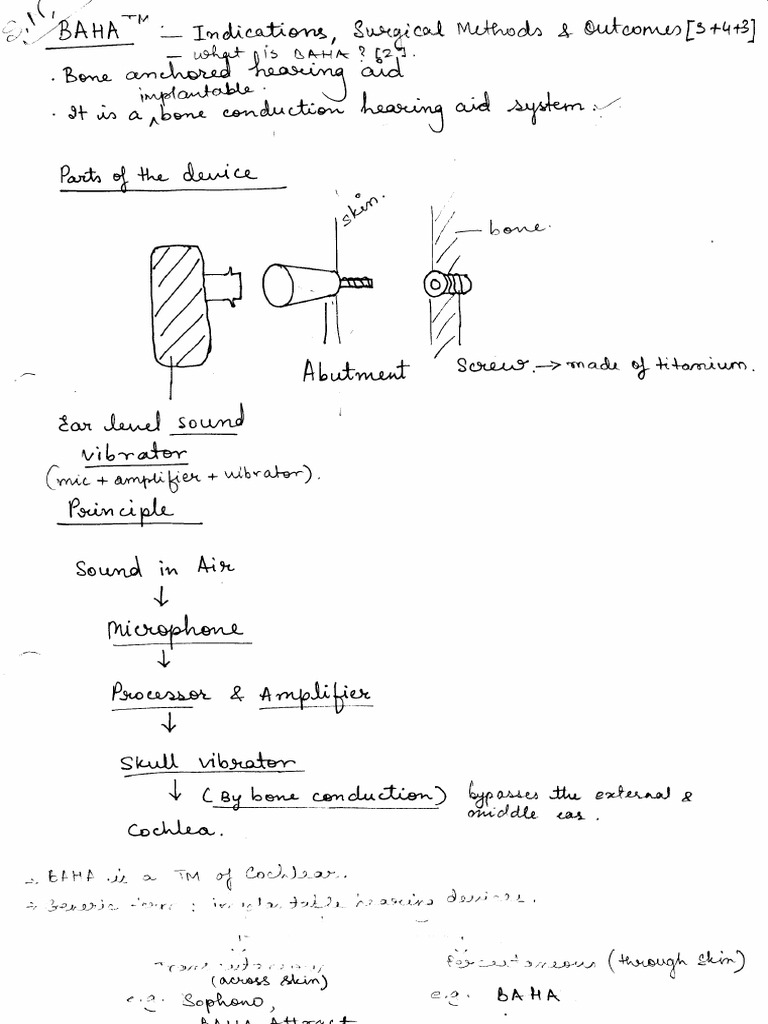 BAHA™ :- Indications, Surgical Methods & Outcomes [3+4+3]
- what is BAHA? [2].
. Bone anchored hearing aid
implantable.
. It is a ^ bone conduction hearing aid system.
Parts of the device
skin.
bone.
Abutment
Screw. → made of titanium.
Ear level sound
vibrator
(mic + amplifier + vibrator).
Principle
Sound in Air
↓
Microphone
↓
Processor & Amplifier
↓
Skull vibrator
↓ (By bone conduction) bypasses the external &
middle ear.
Cochlea.
→ BAHA is a TM of Cochlear.
→ Generic : implantable hearing devices.
Percutaneous (through skin)
(across skin)
e.g. Sophono,
e.g. BAHA
BAHA Attract